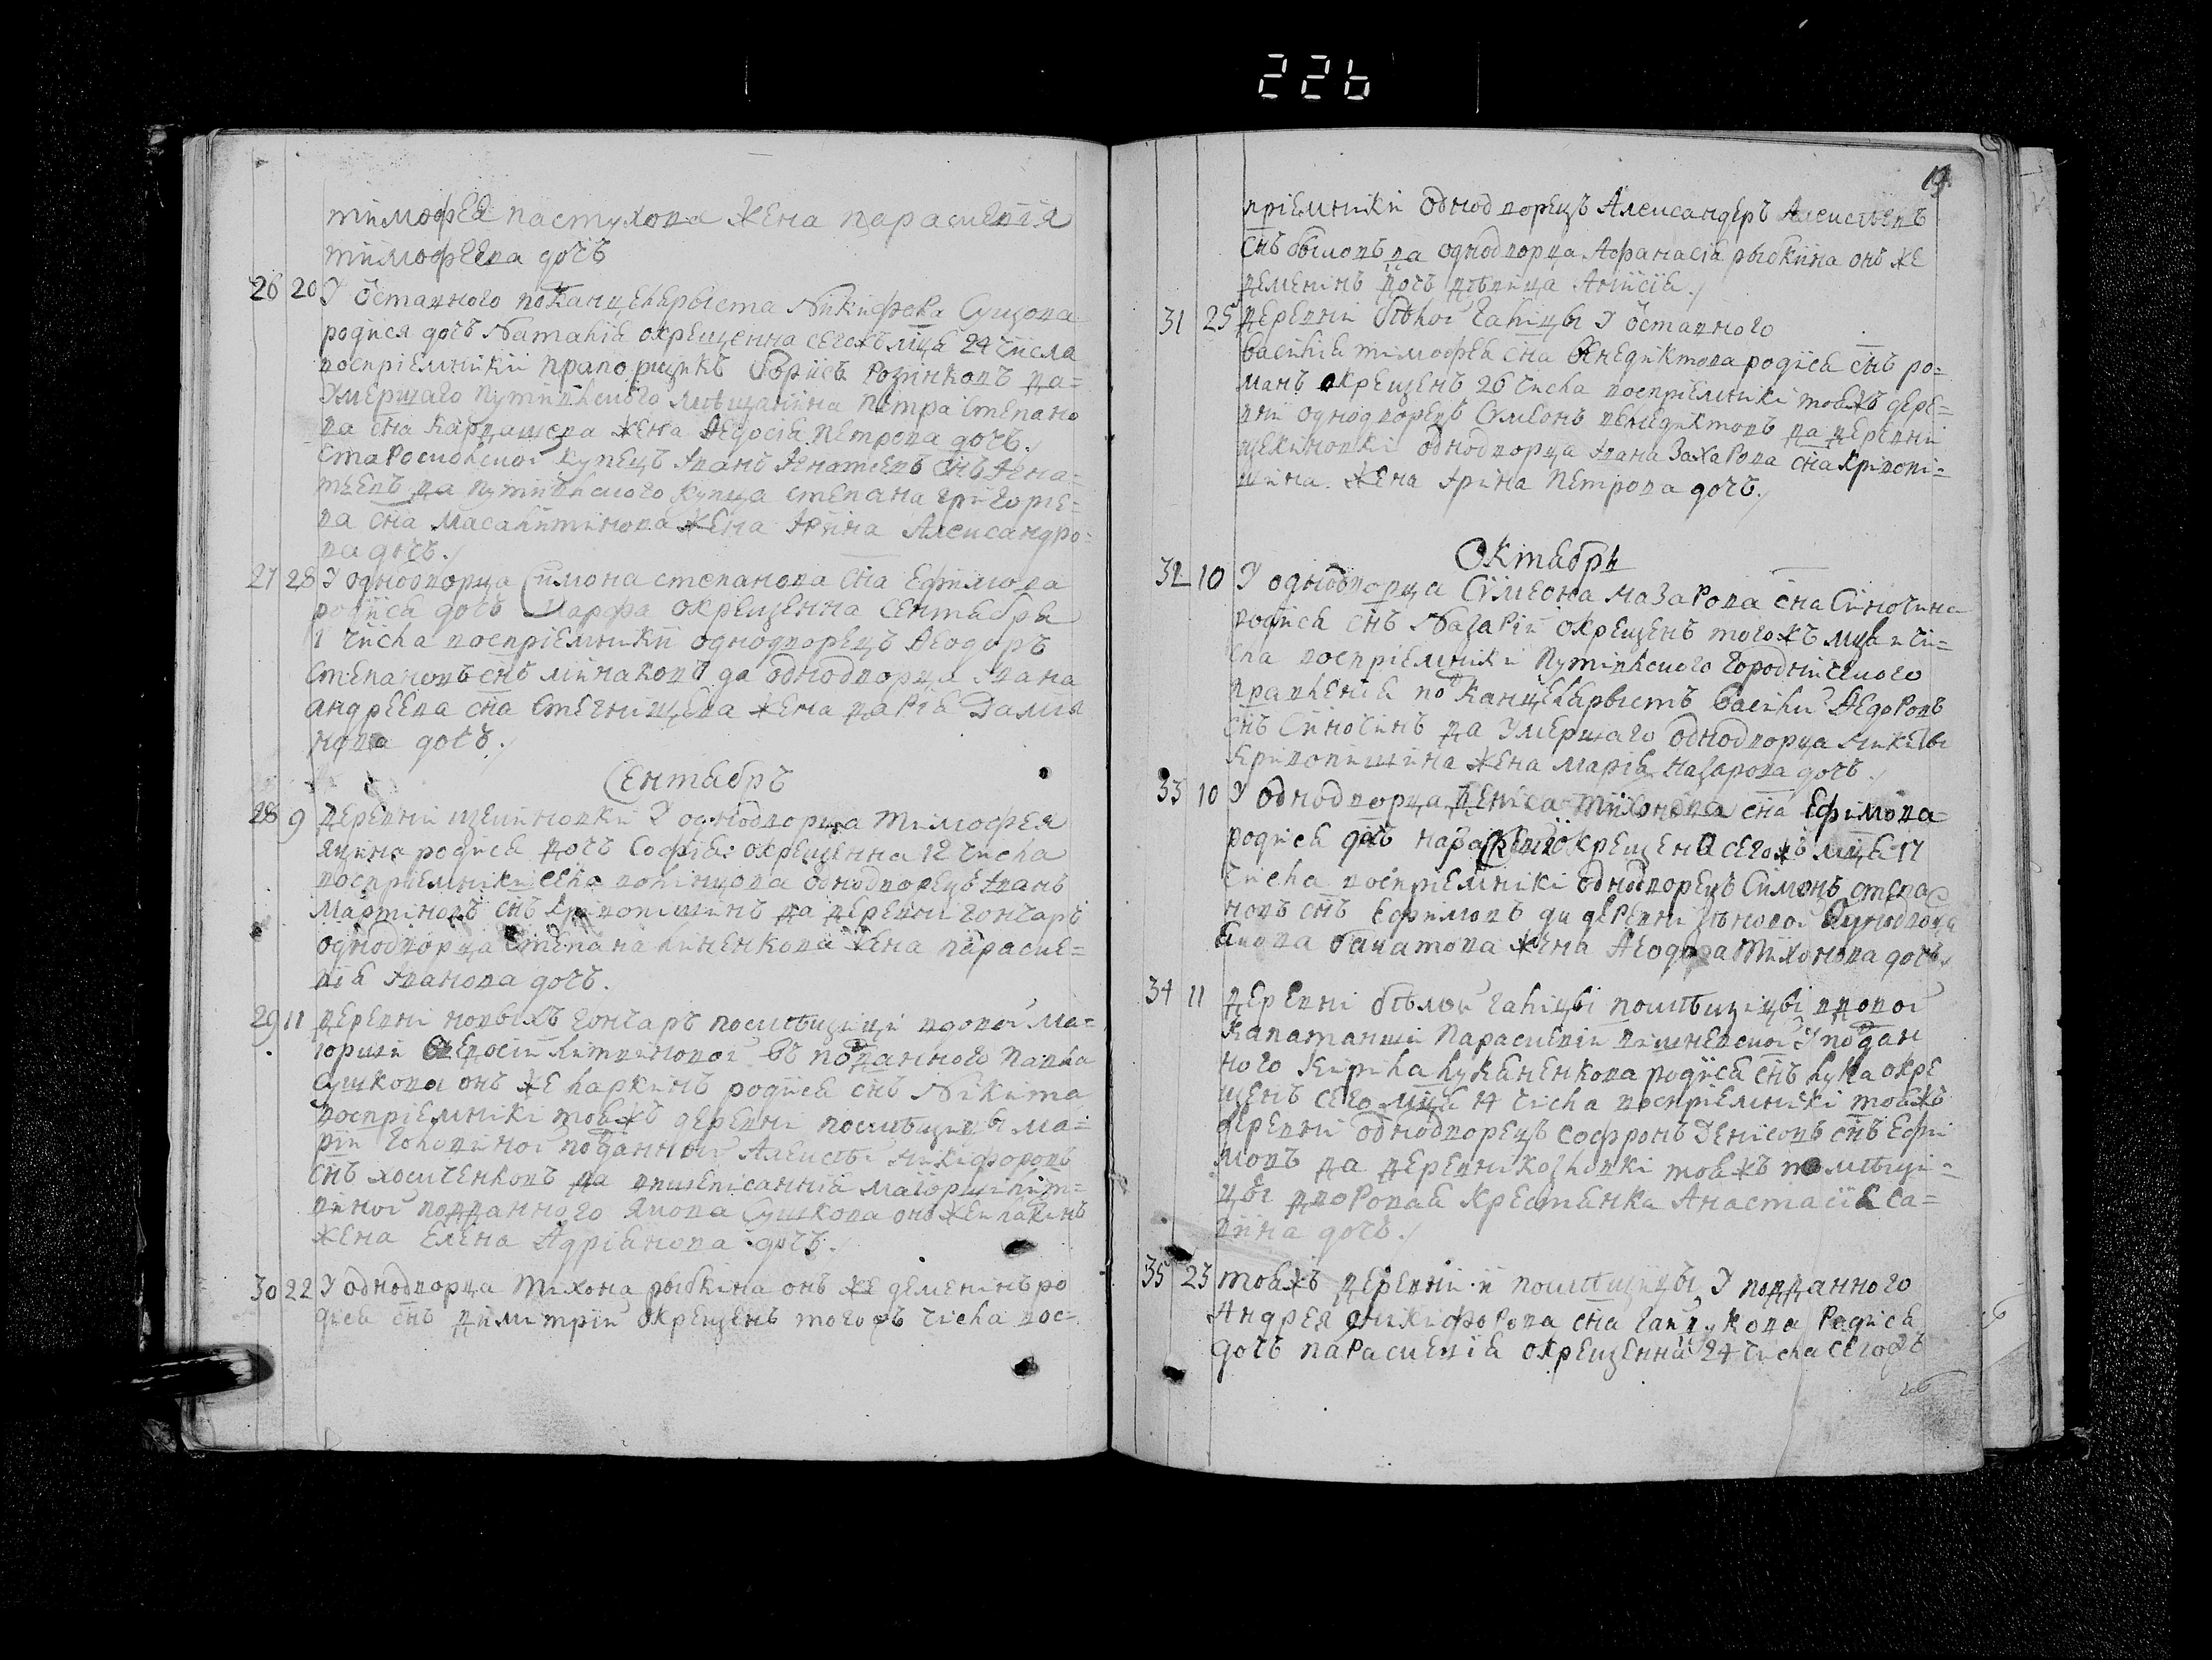 226
тимофея пастухова жена параскевия
тимофеева дочъ
26 20 У отставного подканцеляриста Никифора Сущова
родися дочъ Наталия окрещенна сегожъ мца 24 числа
восприемники прапорщикъ Борисъ Розинковъ да=
Умершаго путивлского мещанина петра степано
ва сна кардашева жена Федосия петрова дочъ./
старосколской купецъ Иванъ Игнатьевъ снъ Игна=
тьевъ да путивлского купца степана григорие=
ва сна масалитинова жена Ирина Александро=
ва дочъ./
27 28 У однодворца Симона степанова сна Ефимова
родися дочъ Марфа окрещенна Сентября
1 числа восприемники однодворецъ Феодоръ
степановъ снъ минаковъ да однодворца Ивана
андреева сна жена дария Дамия
нова дочъ./
Сентябрь
28 9 деревни щекиновки У однодворца тимофея
родися дочъ София: окрещенна 12 числа
восприемники села волинцова однодворецъ Иванъ
мартиновъ снъ кривопишинъ да деревни гончаръ
однодворца степана линенкова жена параске=
вия Иванова дочъ.
29 11 деревни новыхъ гончаръ помещици вдовой ма=
иорши Федосии литвиновой въ подданного павла
сушкова онъ же ларкинъ родися снъ Никита
восприемники тояжъ деревни помещицы ма=
рии головиной подданной Алексей никифоровъ
снъ хомиченковъ да вишеписанния маиорши лит=
виной подданного якова сушкова онъ же ларкинъ
жена Елена Адриянова дочъ./
30 22 У однодворца тихона рыбкина онъ же деменинъ ро
дися снъ димитрий окрещенъ тогожъ числа вос=
19
приемники однодворецъ Александеръ Алексиевъ
снъ быловъ да однодворца Афанасия рыбкина онъ же
деменинъ дочъ девица Анисия./
31 25 деревни белой галицы У отставного
василия тимофея сна Венедиктова родися снъ ро=
манъ окрещенъ 26 числа восприемники тояжъ дере=
вни однодворецъ Симеонъ венедиктовъ да деревни
щекиновки однодворца Ивана Захарова сна кривопи=
шина жена Ирина Петрова дочъ./
Октябрь
32 10 У однодворца Симеона назарова сна Синочина
родися снъ Назарий окрещенъ тогожъ мца и чи=
сла восприемники путивлского городнического
правления подканцеляристъ василий Федоровъ
снъ Синочинъ да Умершаго однодворца никиты
кривопишина жена мария назарова дочъ./
33 10 У однодворца дениса тихонова сна Ефимова=
родися дочъ параскевия окрещена сегожъ мца 17
числа восприемники однодворецъ Симонъ степа
новъ снъ Ефимовъ да деревни новой однодворца
якова жена Феодора тихонова дочъ./
34 11 деревни белой галицы помещицы вдовой
капитанши параскевии вишневской У поддан
ного кирила лукяненкова родися снъ лука окре
щенъ сего мца 14 числа восприемники тояжъ
деревни однодворецъ софронъ Денисовъ снъ Ефи
мовъ да деревни козловки тояжъ помещи=
цы дворовая крестянка Анастасия са=
вина дочъ./
35 23 тояжъ деревни и помещицы У подданного
Андрея никифорова сна родися
дочъ параскевия окрещенна 24 числа сегожъ